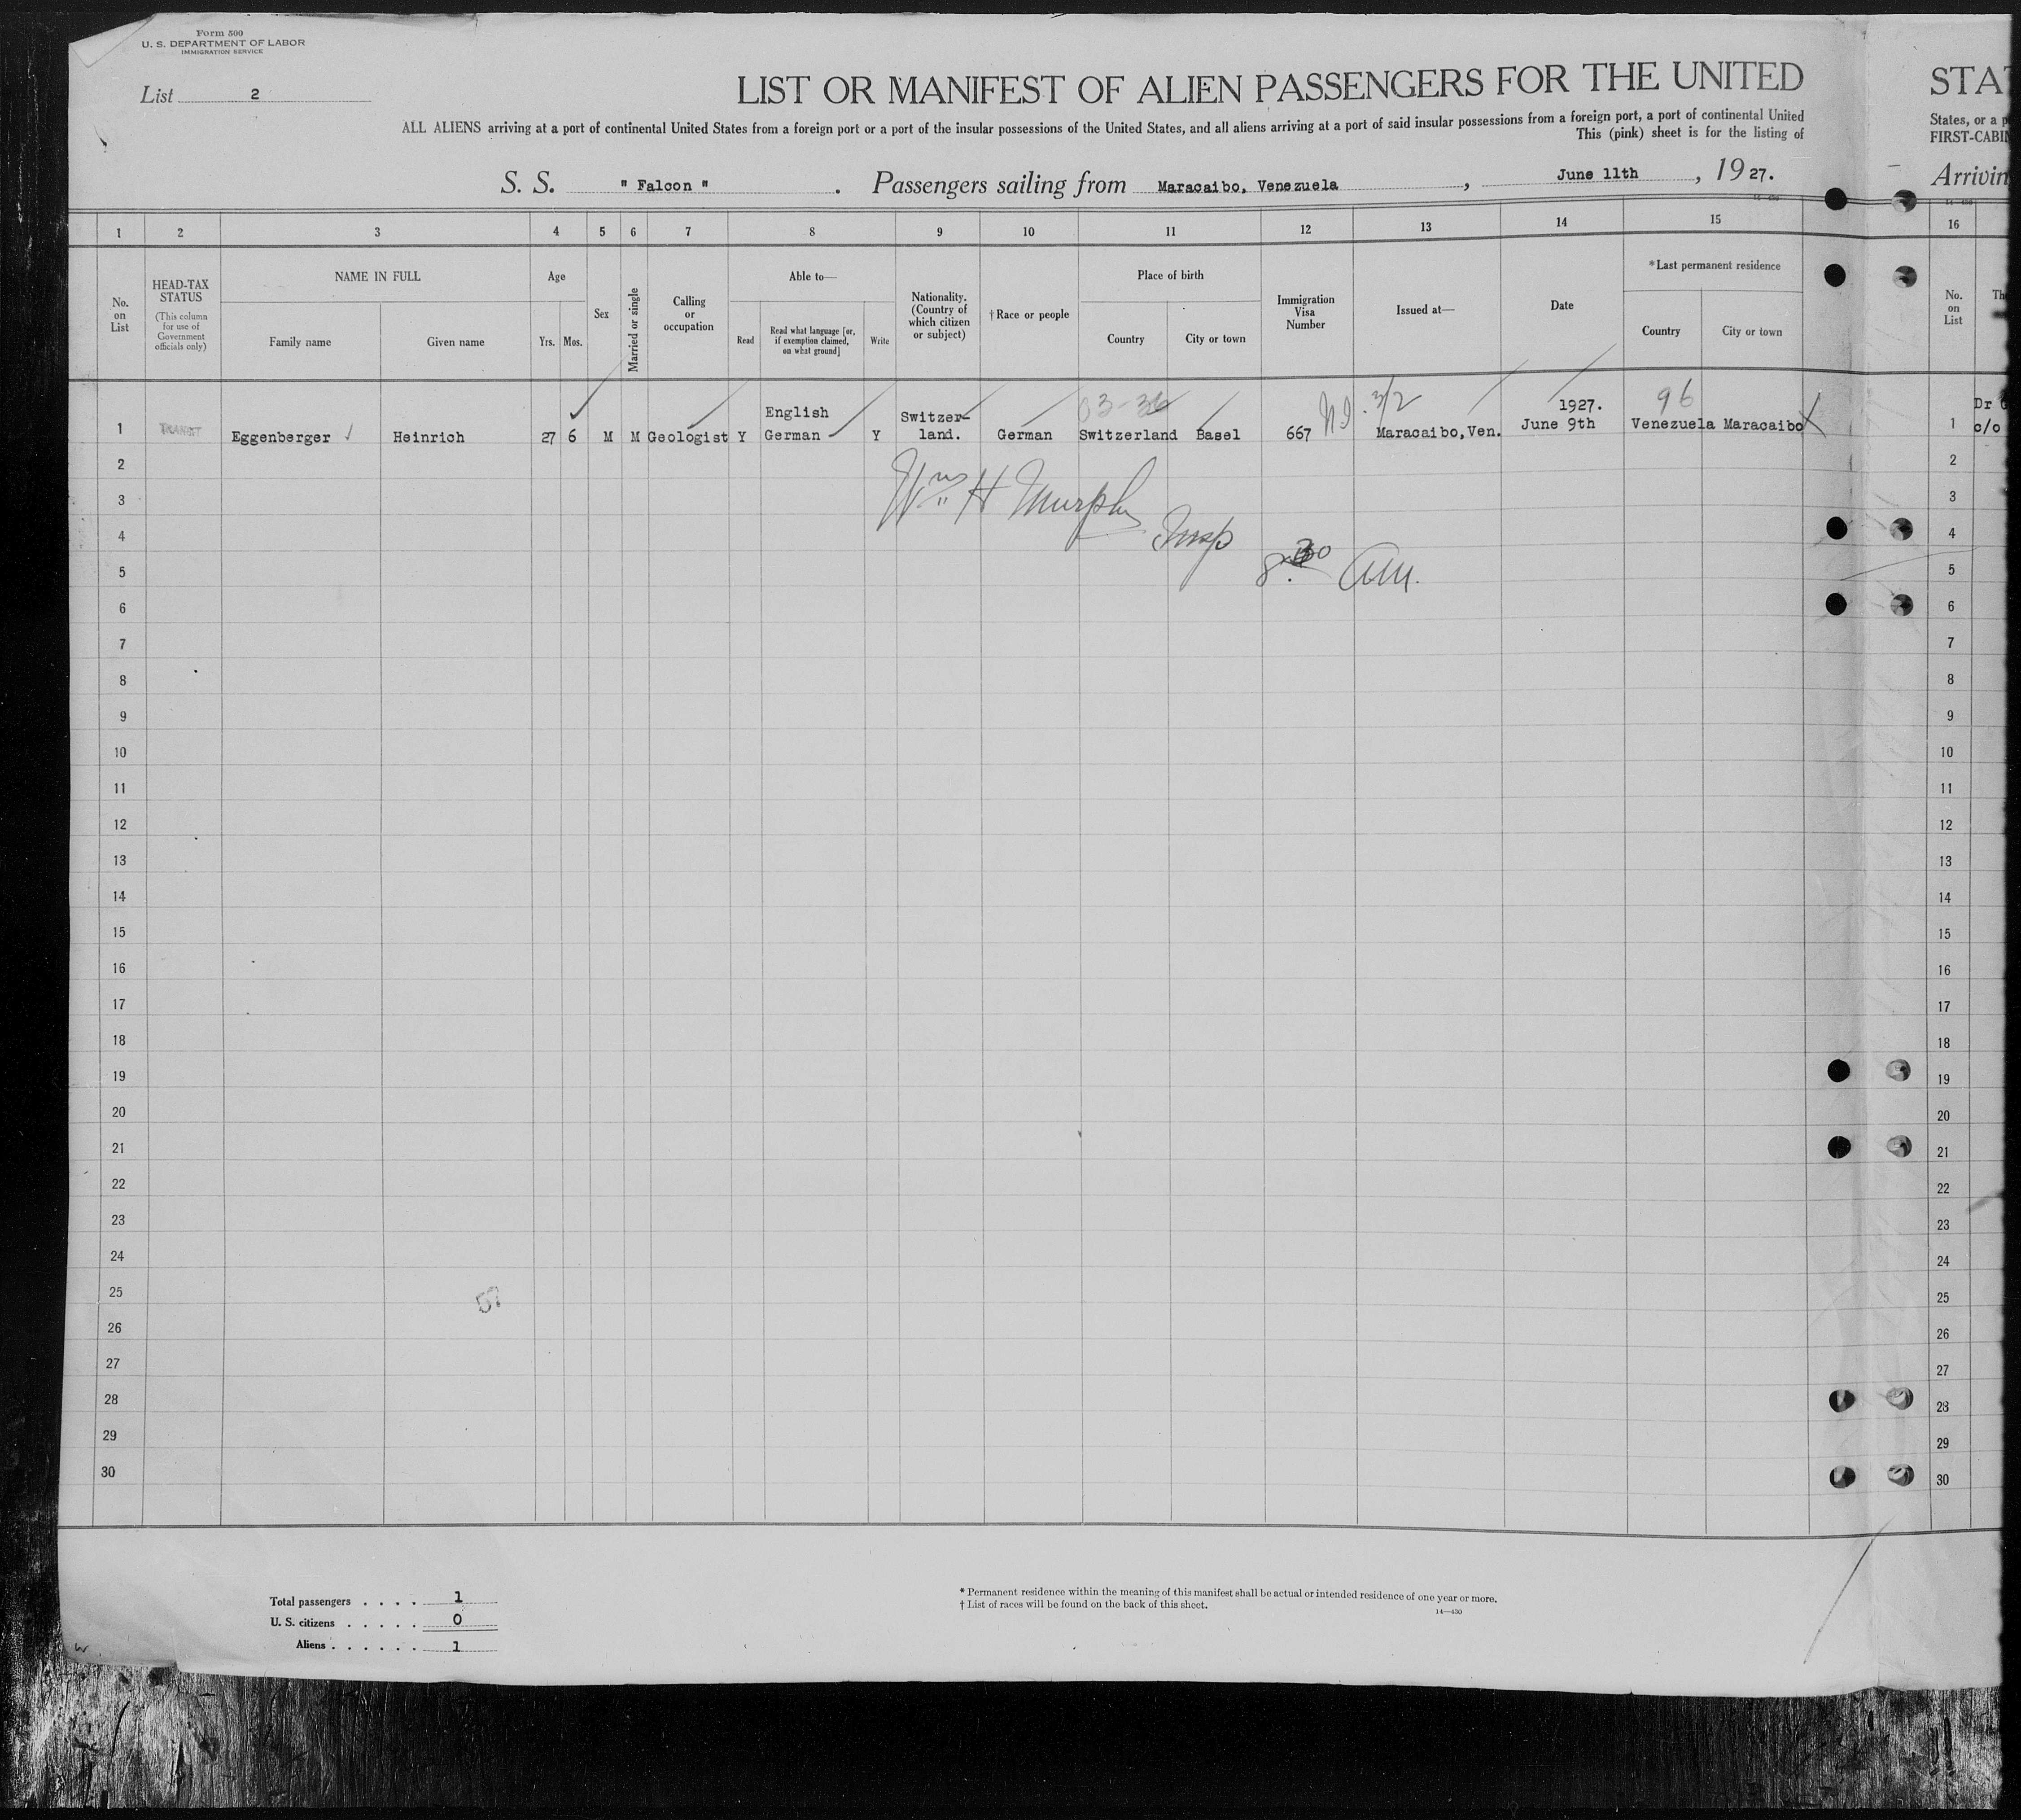 Form 500
U. S. DEPARTMENT OF LABOR
IMMIGRATION SERVICE
List 2
LIST OR MANIFEST OF ALIEN PASSENGERS FOR THE UNITED
STAT
ALL ALIENS arriving at a port of continental United States from a foreign port or a port of the insular possessions of the United States, and all aliens arriving at a port of said insular possessions from a foreign port, a port of continental United
States, or a p
This (pink) sheet is for the listing of
FIRST-CABIN
S. S. " Falcon " . Passengers sailing from Maracaibo, Venezuela , June 11th , 19 27.
Arrivin
1 2 3 4 5 6 7 8 9 10 11 12 13 14 15 16
No. on List
HEAD-TAX STATUS
(This column for use of Government officials only)
NAME IN FULL
Family name
Given name
Age
Yrs.
Mos.
Sex
Married or single
Calling or occupation
Able to—
Read
Read what language [or, if exemption claimed, on what ground]
Write
Nationality. (Country of which citizen or subject)
†Race or people
Place of birth
Country
City or town
Immigration Visa Number
Issued at—
Date
*Last permanent residence
Country
City or town
No. on List
Th
03-36
3/2
96
1 TRANSIT Eggenberger Heinrich 27 6 M M Geologist Y English German Y Switzer-land. German Switzerland Basel 667 Maracaibo,Ven. 1927. June 9th Venezuela Maracaibo
1 Dr
c/o
Wm H Murphy
Insp
8.30 AM.
2 2
3 3
4 4
5 5
6 6
7 7
8 8
9 9
10 10
11 11
12 12
13 13
14 14
15 15
16 16
17 17
18 18
19 19
20 20
21 21
22 22
23 23
24 24
25 25
26 26
27 27
28 28
29 29
30 30
57
Total passengers . . . . 1
U. S. citizens . . . . . 0
Aliens . . . . . . 1
* Permanent residence within the meaning of this manifest shall be actual or intended residence of one year or more.
† List of races will be found on the back of this sheet.
14—430